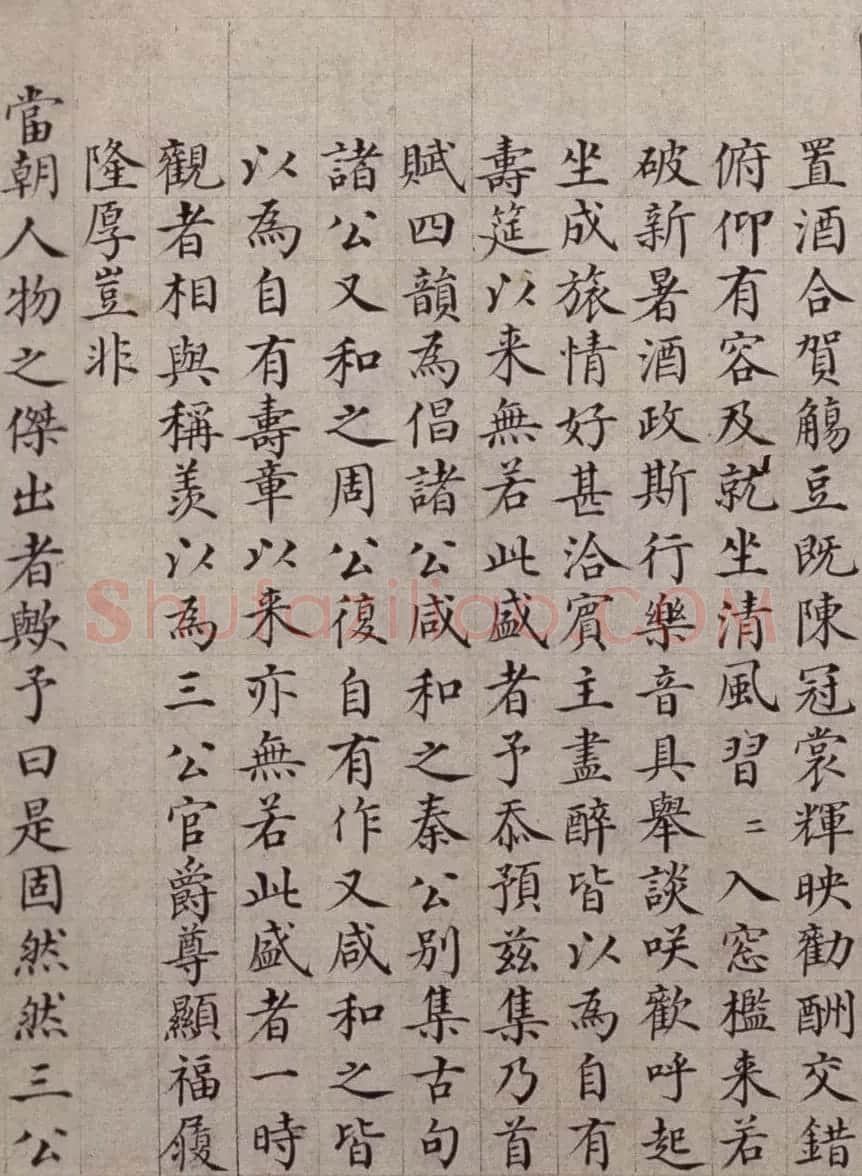 置酒合賀觴豆既陳冠裳輝映勸酬交錯
俯仰有容及就坐清風習〻入窓檻来若
破新暑酒政斯行樂音具舉談咲歡呼起
坐成旅情好甚洽賓主盡醉皆以為自有
壽筵以来無若此盛者予忝預兹集乃首
賦四韻為倡諸公咸和之秦公别集古句
諸公又和之周公復自有作又咸和之皆
以為自有壽章以来亦無若此盛者一時
觀者相與稱羨以為三公官爵尊顯福履
隆厚豈非
當朝人物之傑出者歟予曰是固然然三公
shufaziliao.COM